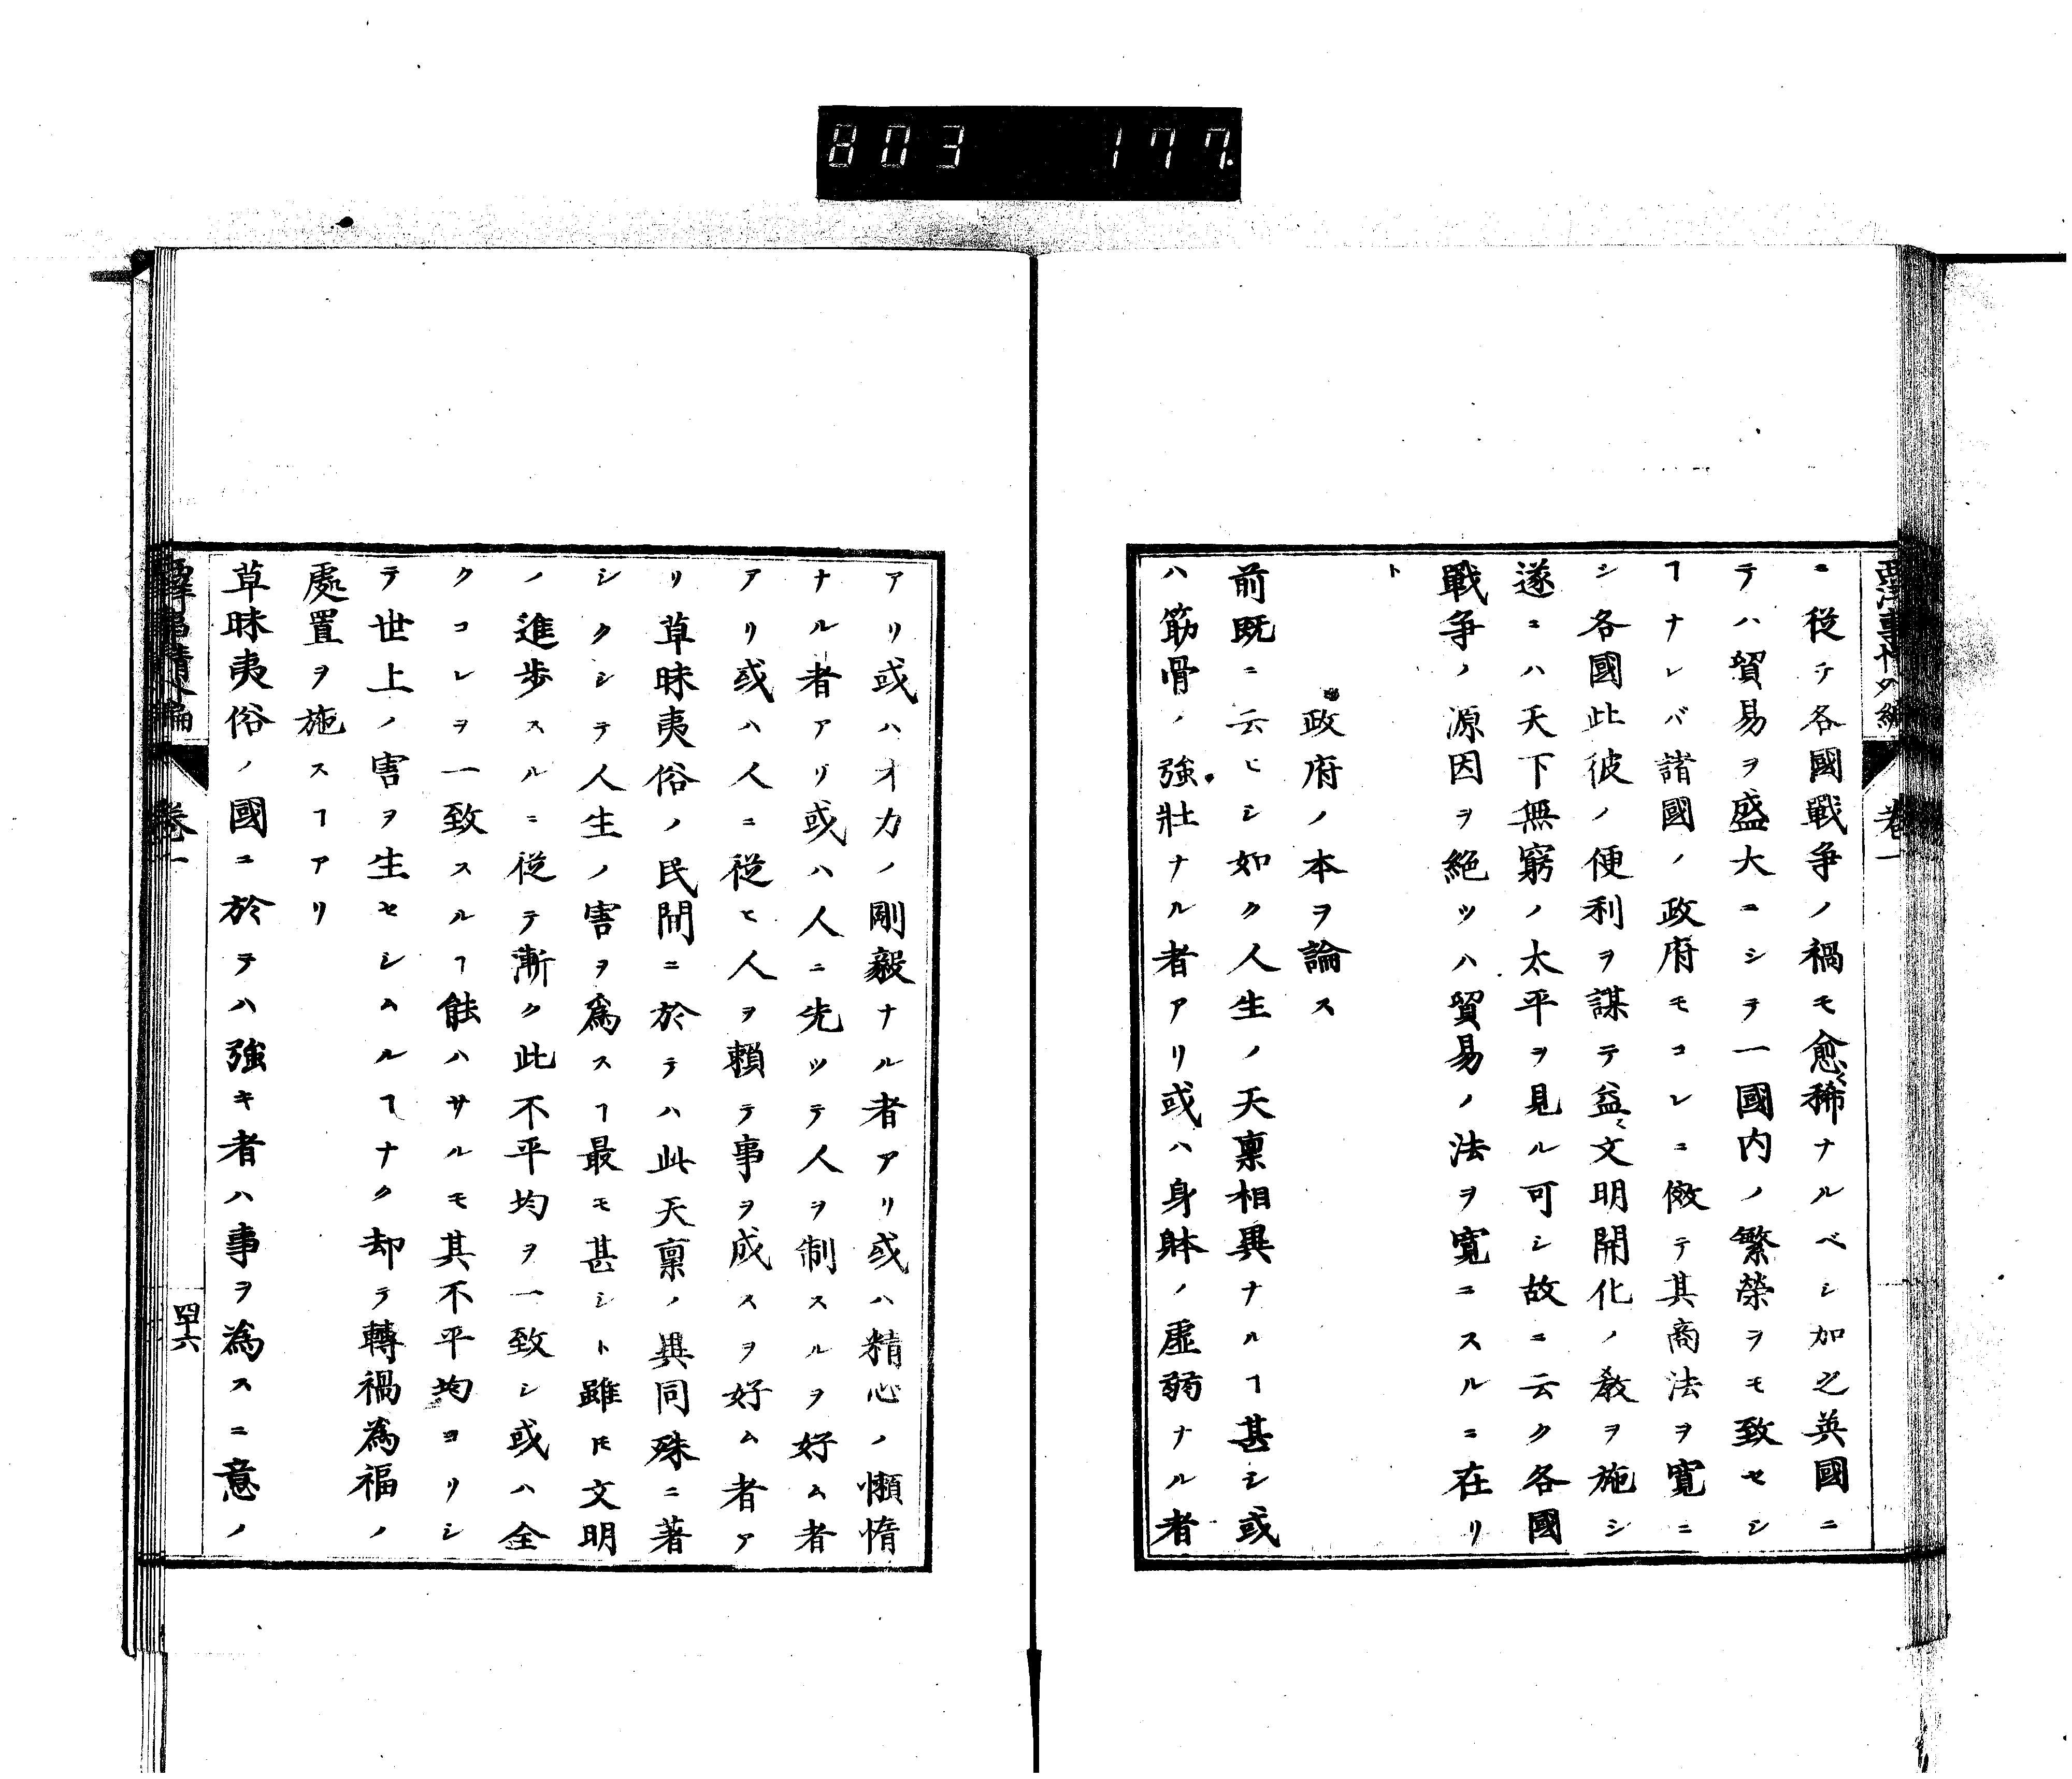 803 177
西洋事情外編
卷一
ニ從テ各國戰爭ノ禍モ愈〻稀ナルベシ加之英國ニ
テハ貿易ヲ盛大ニシテ一國内ノ繁榮ヲモ致セシ
ヿナレバ諸國ノ政府モコレニ傚テ其商法ヲ寬ニ
シ各國此彼ノ便利ヲ謀テ益〻文明開化ノ教ヲ施シ
遂ニハ天下無窮ノ太平ヲ見ル可シ故ニ云ク各國
戰爭ノ源因ヲ絶ツハ貿易ノ法ヲ寬ニスルニ在リ
ト
政府ノ本ヲ論ス
前既ニ云ヒシ如ク人生ノ天稟相異ナルヿ甚シ或
ハ筋骨ノ強壯ナル者アリ或ハ身躰ノ虛弱ナル者
アリ或ハオカノ剛毅ナル者アリ或ハ精心ノ懶惰
ナル者アリ或ハ人ニ先ツテ人ヲ制スルヲ好ム者
アリ或ハ人ニ從ヒ人ヲ賴テ事ヲ成スヲ好ム者ア
リ草昧夷俗ノ民間ニ於テハ此天稟ノ異同殊ニ著
シクシテ人生ノ害ヲ爲スヿ最モ甚シト雖𪜈文明
ノ進歩スルニ從テ漸ク此不平均ヲ一致シ或ハ全
クコレヲ一致スルヿ能ハサルモ其不平均ヨリシ
テ世上ノ害ヲ生セシムルヿナク却テ轉禍為福ノ
處置ヲ施スヿアリ
草昧夷俗ノ國ニ於テハ強キ者ハ事ヲ為スニ意ノ
卷一
四十六